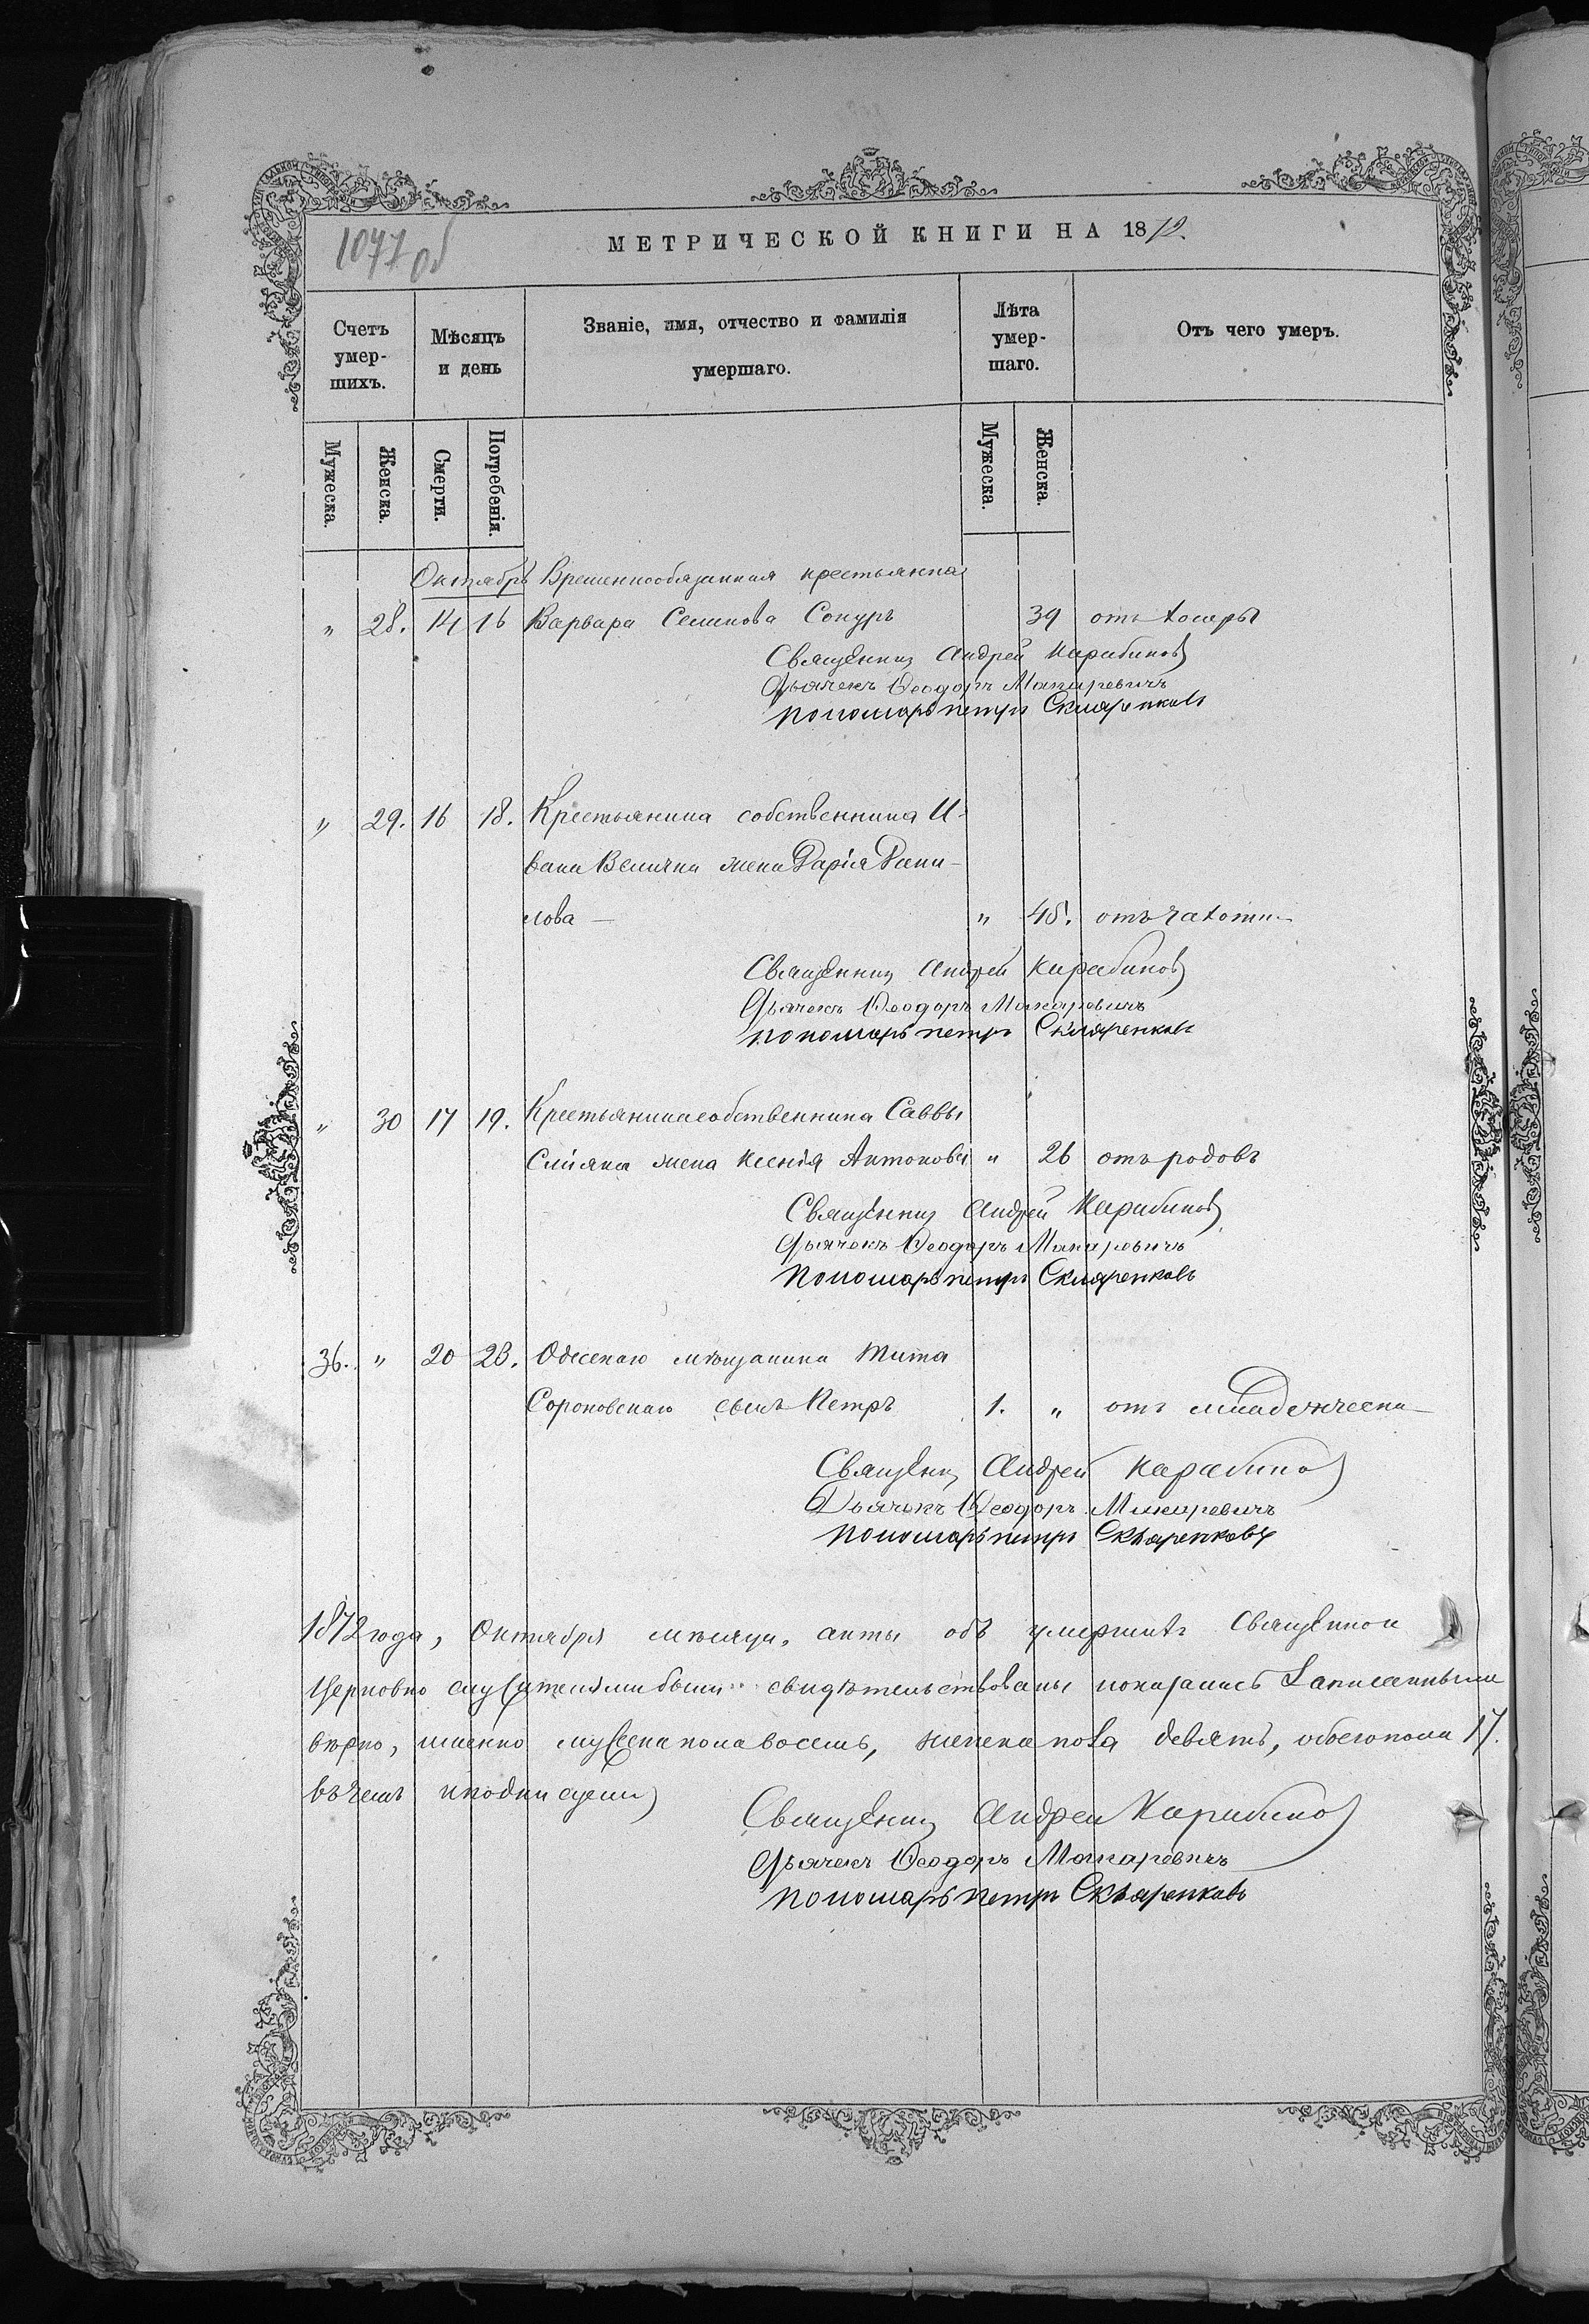 1071 об
МЕТРИЧЕСКОЙ КНИГИ НА 1872.
Счетъ умер-шихъ.
Мѣсяцъ и день
Званіе, имя, отчество и фамилія умершаго.
Лѣта умер-шаго.
Отъ чего умеръ.
Мужеска. Женска. Смерти. Погребенія. Мужеска. Женска.
Октябрь Временнообязанная крестьянка
" 28. 14 16 Варвара Семинова Сокуръ 39 отъ холеры
Священникъ Андрей Карабиновъ
Дьячекъ Ѳеодоръ Макаревичъ
пономарь петръ Скляренковъ
" 29. 16 18. Крестьянина собственника И-
вана Величка жена Дарія Дани-
лова — " 45. отъ чахотки
Священникъ Андрей Карабиновъ
Дьячекъ Ѳеодоръ Макаревичъ
пономарь петръ Скляренковъ
" 30 17 19. Крестьянина собственника Саввы
жена Ксенія Антонова " 26 отъ родовъ
Священникъ Андрей Карабиновъ
Дьячекъ Ѳеодоръ Макаревичъ
Пономарь петръ Скляренковъ
36. " 20 23. Одескаго мѣщанина Тита
Сороковскаго сынъ Петръ 1. " отъ младенческа
Священникъ Андрей Карабиновъ
Дьячекъ Ѳеодоръ Макаревичъ
Пономарь петръ Скляренковъ
1872 года, Октября мѣсяца, акты объ умершихъ Священно и
Церковно служителями были свидѣтельствованы показались Записанными
вѣрно, именно мужеска пола восемь, женска пола девять, обоего пола 17.
въ чемъ и подписуемся
Священникъ Андрей Карабиновъ
Дьячекъ Ѳеодоръ Макаревичъ
Пономарь петръ Скляренковъ